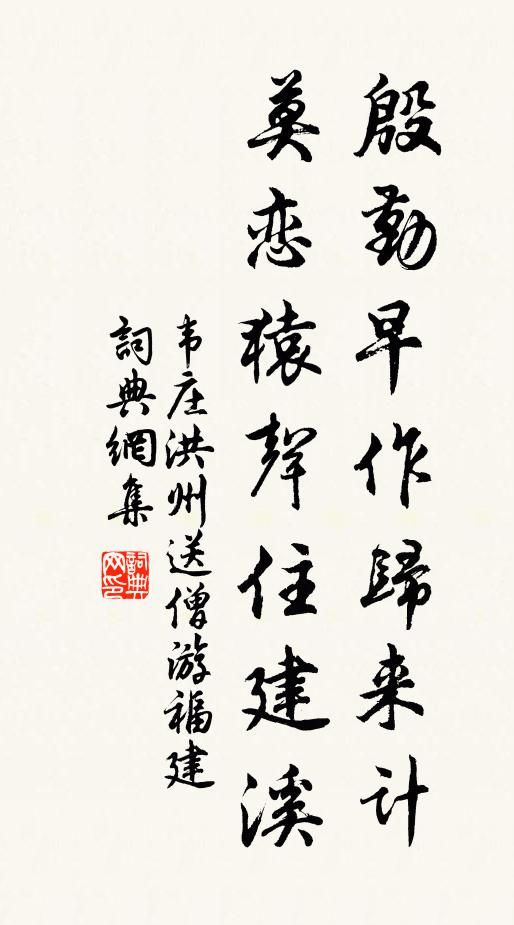 殷勤早作歸来计
莫恋猿聲住建溪
韦庄洪州送僧游福建
詞典網集
詞典网印